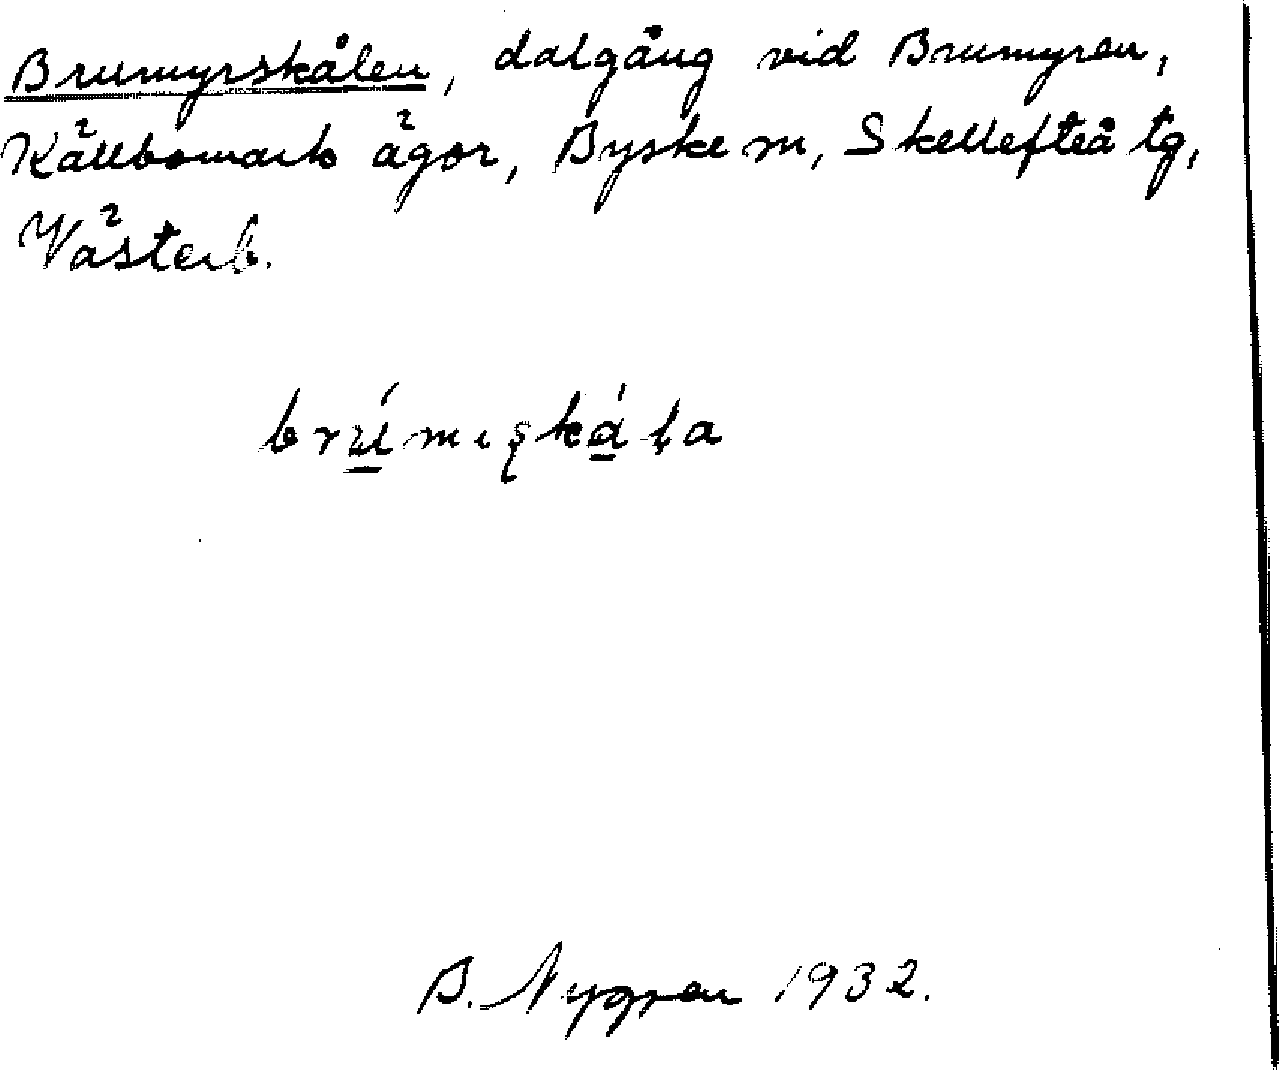 Brumyrskålen, dalgång vid Brumyren,
Källbomark ägor, Byske sn, Skellefteå tg,
Västerb.
B. Nygren 1932.